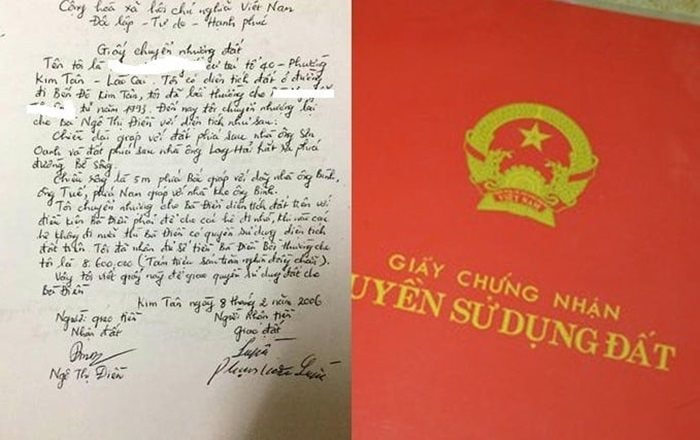 Cộng hòa xã hội chủ nghĩa Việt Nam
Độc lập - Tự do - Hạnh phúc
Giấy chuyển nhượng đất
Tên tôi là cư trú tổ 40 - Phường
Kim Tân - Lào Cai. Tôi có diện tích đất ở đường
đi Bến Đá Kim Tân, tôi đã bồi thường cho
từ năm 1993. Đến nay tôi chuyển nhượng lại
cho Bà Ngô Thị Điền với diện tích như sau:
Chiều dài giáp với đất phía sau nhà ông Sựu
Oanh và đất phía sau nhà ông Long Hải hất ra phía
đường Bờ sông.
Chiều rộng là 5m phía Bắc giáp với dãy nhà ông Bính,
ông Tuê, phía Nam giáp với nhà kho ông Bính.
Tôi chuyển nhượng cho Bà Điền diện tích đất trên với
điều kiện Bà Điền phải để cho các hộ đi nhờ, khi nào các
hộ không đi nữa thì Bà Điền có quyền sử dụng diện tích
đất trên. Tôi đã nhận đủ số tiền Bà Điền Bồi thường cho
tôi là 8.600.000 (Tám triệu sáu trăm nghìn đồng chẵn).
Vậy tôi viết giấy này để giao quyền sử dụng đất cho
Bà Điền
Kim Tân ngày 8 tháng 2 năm 2006
Người giao tiền Người nhận tiền
Nhận đất Giao đất
Ngô Thị Điền
VIỆT NAM
GIẤY CHỨNG NHẬN
UYỀN SỬ DỤNG ĐẤT